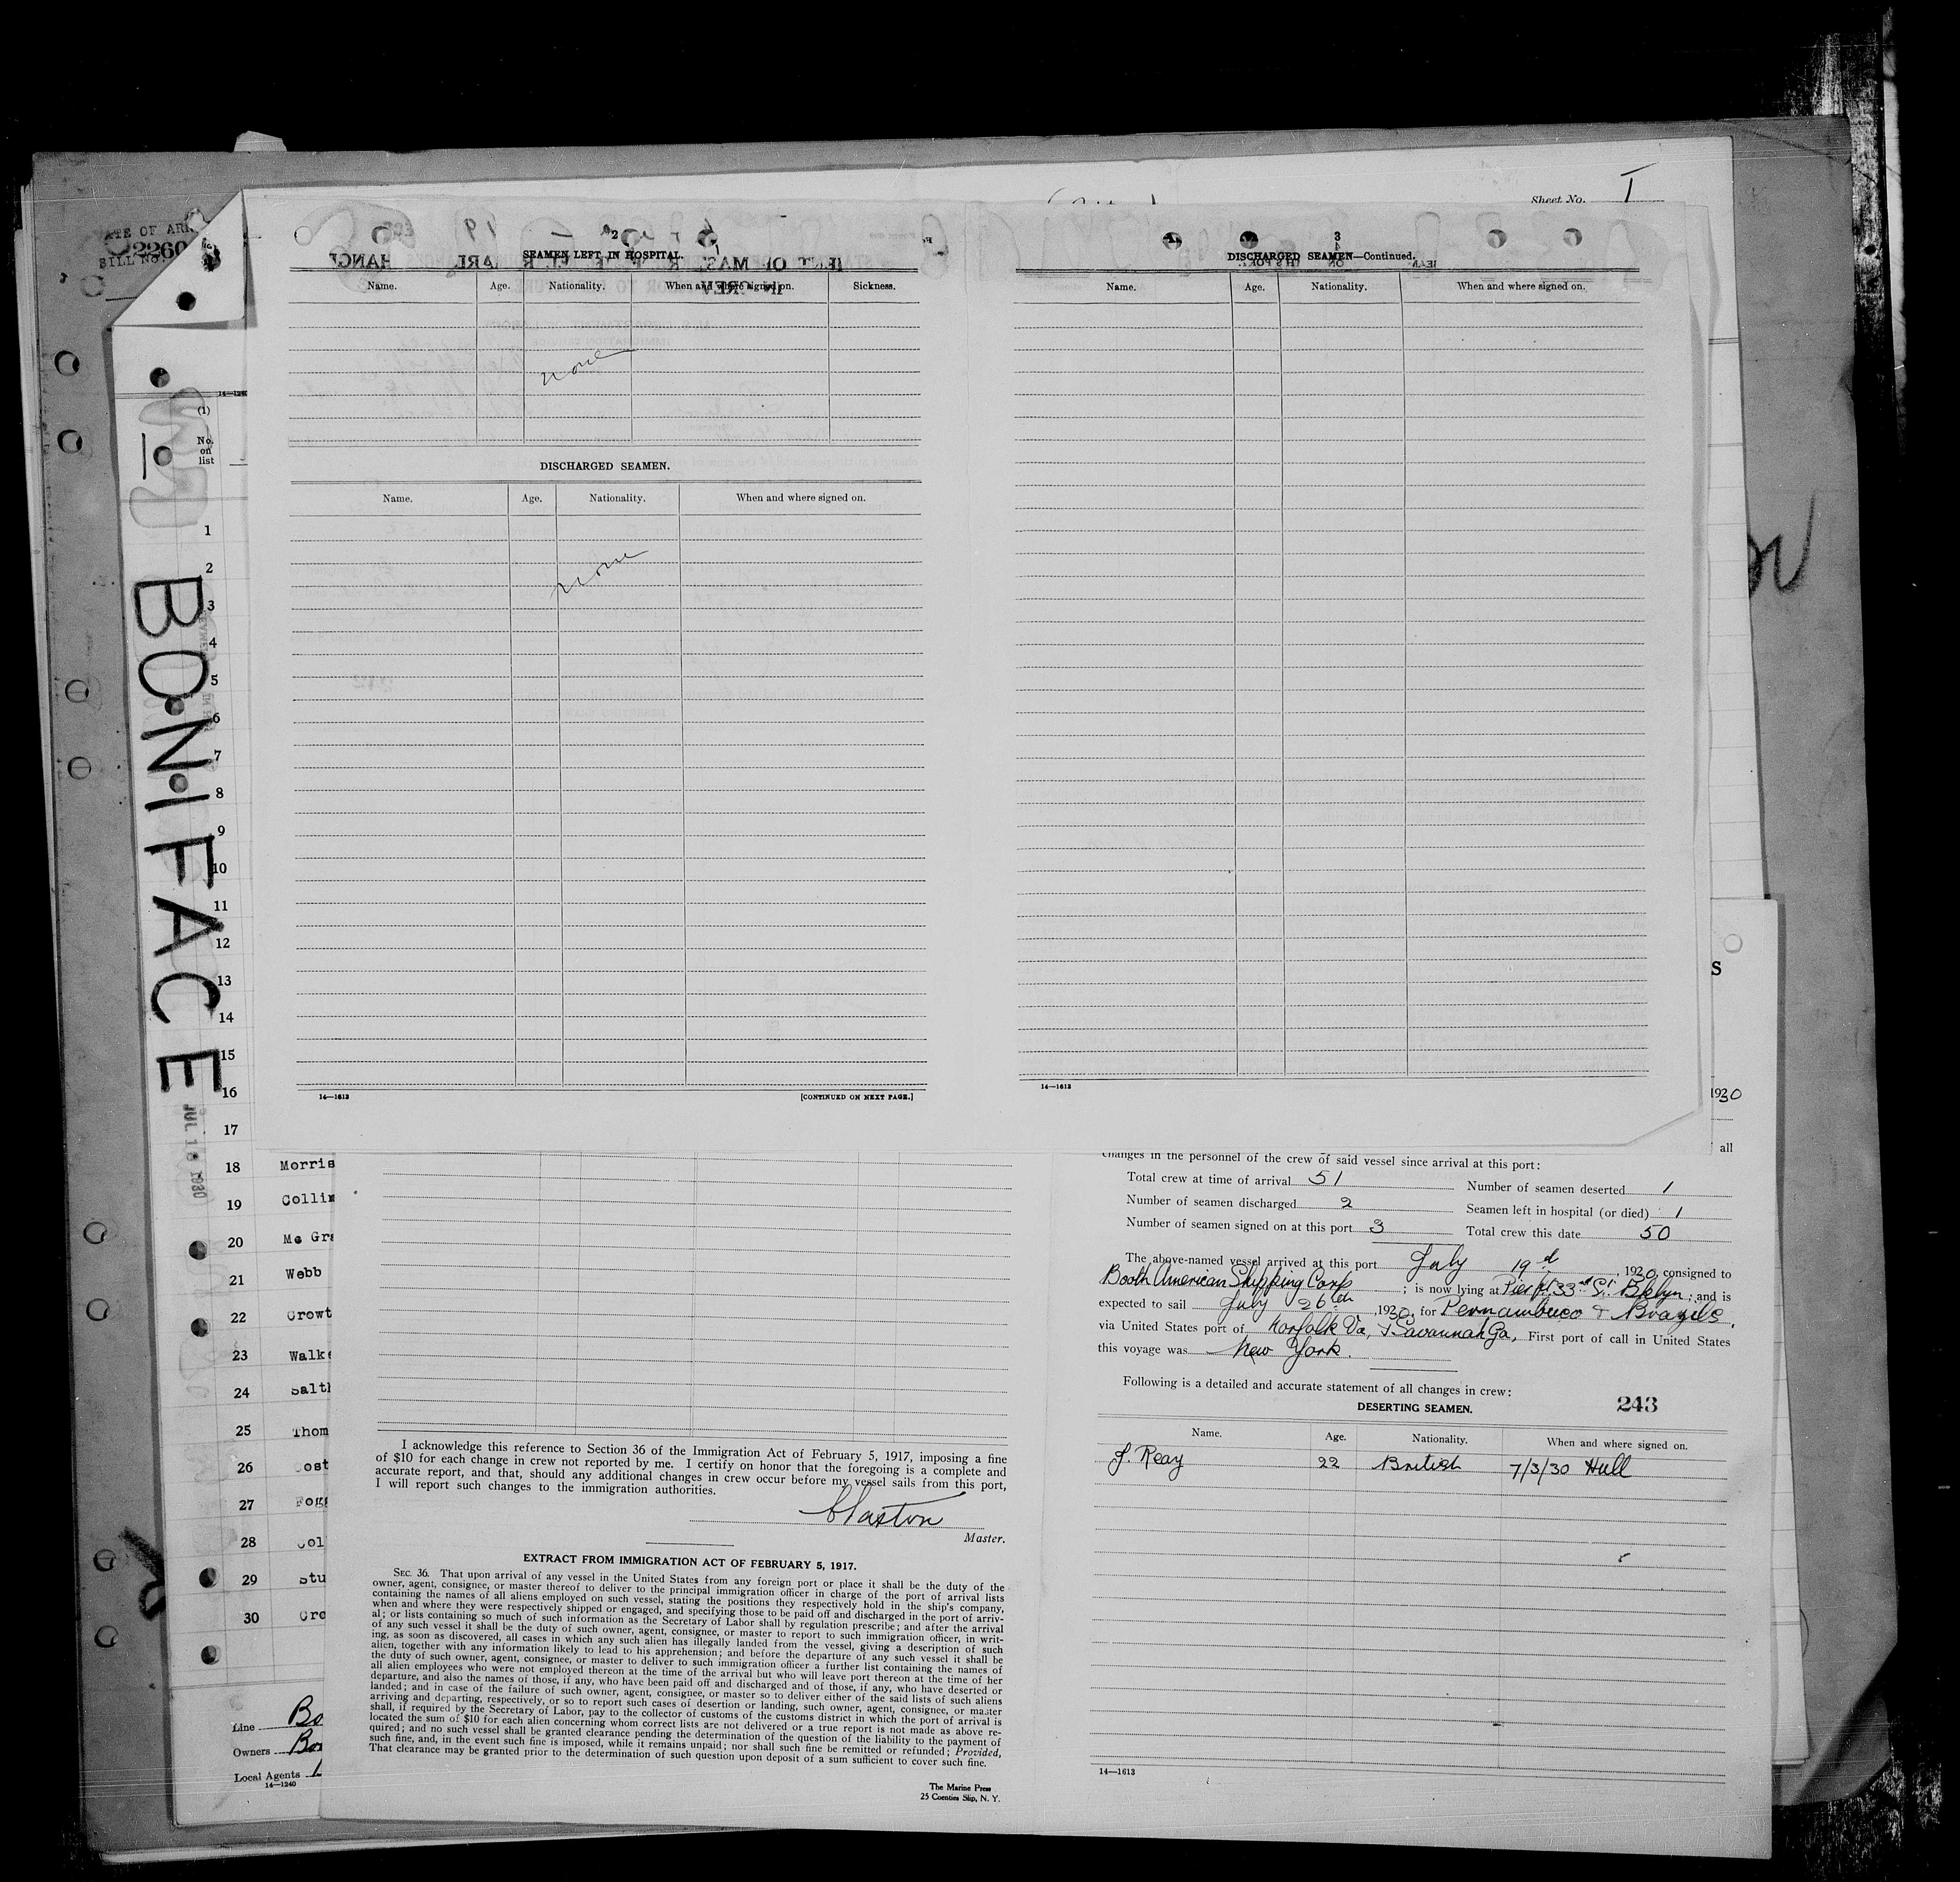 Sheet No. I
ATE OF ARR
2260
BILL No.
2
SEAMEN LEFT IN HOSPITAL.
Name. Age. Nationality. When and where signed on. Sickness.
none
DISCHARGED SEAMEN.
Name. Age. Nationality. When and where signed on.
none
14—1613 [CONTINUED ON NEXT PAGE.]
3
DISCHARGED SEAMEN—Continued.
Name. Age. Nationality. When and where signed on.
14—1613
BONIFACE
JUL 18 1930
14—1240
(1)
No. on list
1
2
3
4
5
6
7
8
9
10
11
12
13
14
15
16
17
18 Morris
19 Collin
20 Mc Gra
21 Webb
22 Crowt
23 Walke
24 Salth
25 Thom
26 ost
27 Fogg
28 Col
29 Stu
30 Cre
Line Bo
Owners Boo
Local Agents
14—1240
S
1930
all
I acknowledge this reference to Section 36 of the Immigration Act of February 5, 1917, imposing a fine
of $10 for each change in crew not reported by me. I certify on honor that the foregoing is a complete and
accurate report, and that, should any additional changes in crew occur before my vessel sails from this port,
I will report such changes to the immigration authorities.
Master.
EXTRACT FROM IMMIGRATION ACT OF FEBRUARY 5, 1917.
SEC. 36. That upon arrival of any vessel in the United States from any foreign port or place it shall be the duty of the
owner, agent, consignee, or master thereof to deliver to the principal immigration officer in charge of the port of arrival lists
containing the names of all aliens employed on such vessel, stating the positions they respectively hold in the ship's company,
when and where they were respectively shipped or engaged, and specifying those to be paid off and discharged in the port of arriv-
al; or lists containing so much of such information as the Secretary of Labor shall by regulation prescribe; and after the arrival
of any such vessel it shall be the duty of such owner, agent, consignee, or master to report to such immigration officer, in writ-
ing, as soon as discovered, all cases in which any such alien has illegally landed from the vessel, giving a description of such
alien, together with any information likely to lead to his apprehension; and before the departure of any such vessel it shall be
the duty of such owner, agent, consignee, or master to deliver to such immigration officer a further list containing the names of
all alien employees who were not employed thereon at the time of the arrival but who will leave port thereon at the time of her
departure, and also the names of those, if any, who have been paid off and discharged and of those, if any, who have deserted or
landed; and in case of the failure of such owner, agent, consignee, or master so to deliver either of the said lists of such aliens
arriving and departing, respectively, or so to report such cases of desertion or landing, such owner, agent, consignee, or master
shall, if required by the Secretary of Labor, pay to the collector of customs of the customs district in which the port of arrival is
located the sum of $10 for each alien concerning whom correct lists are not delivered or a true report is not made as above re-
quired; and no such vessel shall be granted clearance pending the determination of the question of the liability to the payment of
such fine, and, in the event such fine is imposed, while it remains unpaid; nor shall such fine be remitted or refunded; Provided,
That clearance may be granted prior to the determination of such question upon deposit of a sum sufficient to cover such fine.
The Marine Press
25 Coenties Slip, N. Y.
changes in the personnel of the crew of said vessel since arrival at this port:
Total crew at time of arrival 51 Number of seamen deserted 1
Number of seamen discharged 2 Seamen left in hospital (or died) 1
Number of seamen signed on at this port 3 Total crew this date 50
The above-named vessel arrived at this port July 19 , 1930, consigned to
Booth American Shipping Corp ; is now lying at Pier ft. 33rd St. Bklyn; and is
expected to sail July 26th , 1930, for Pernambuco & Brazils,
via United States port of Norfolk Va, & Savannah Ga, First port of call in United States
this voyage was New York.
Following is a detailed and accurate statement of all changes in crew:
243
DESERTING SEAMEN.
Name. Age. Nationality. When and where signed on.
J. Reay 22 British 7/3/30 Hull
14—1613